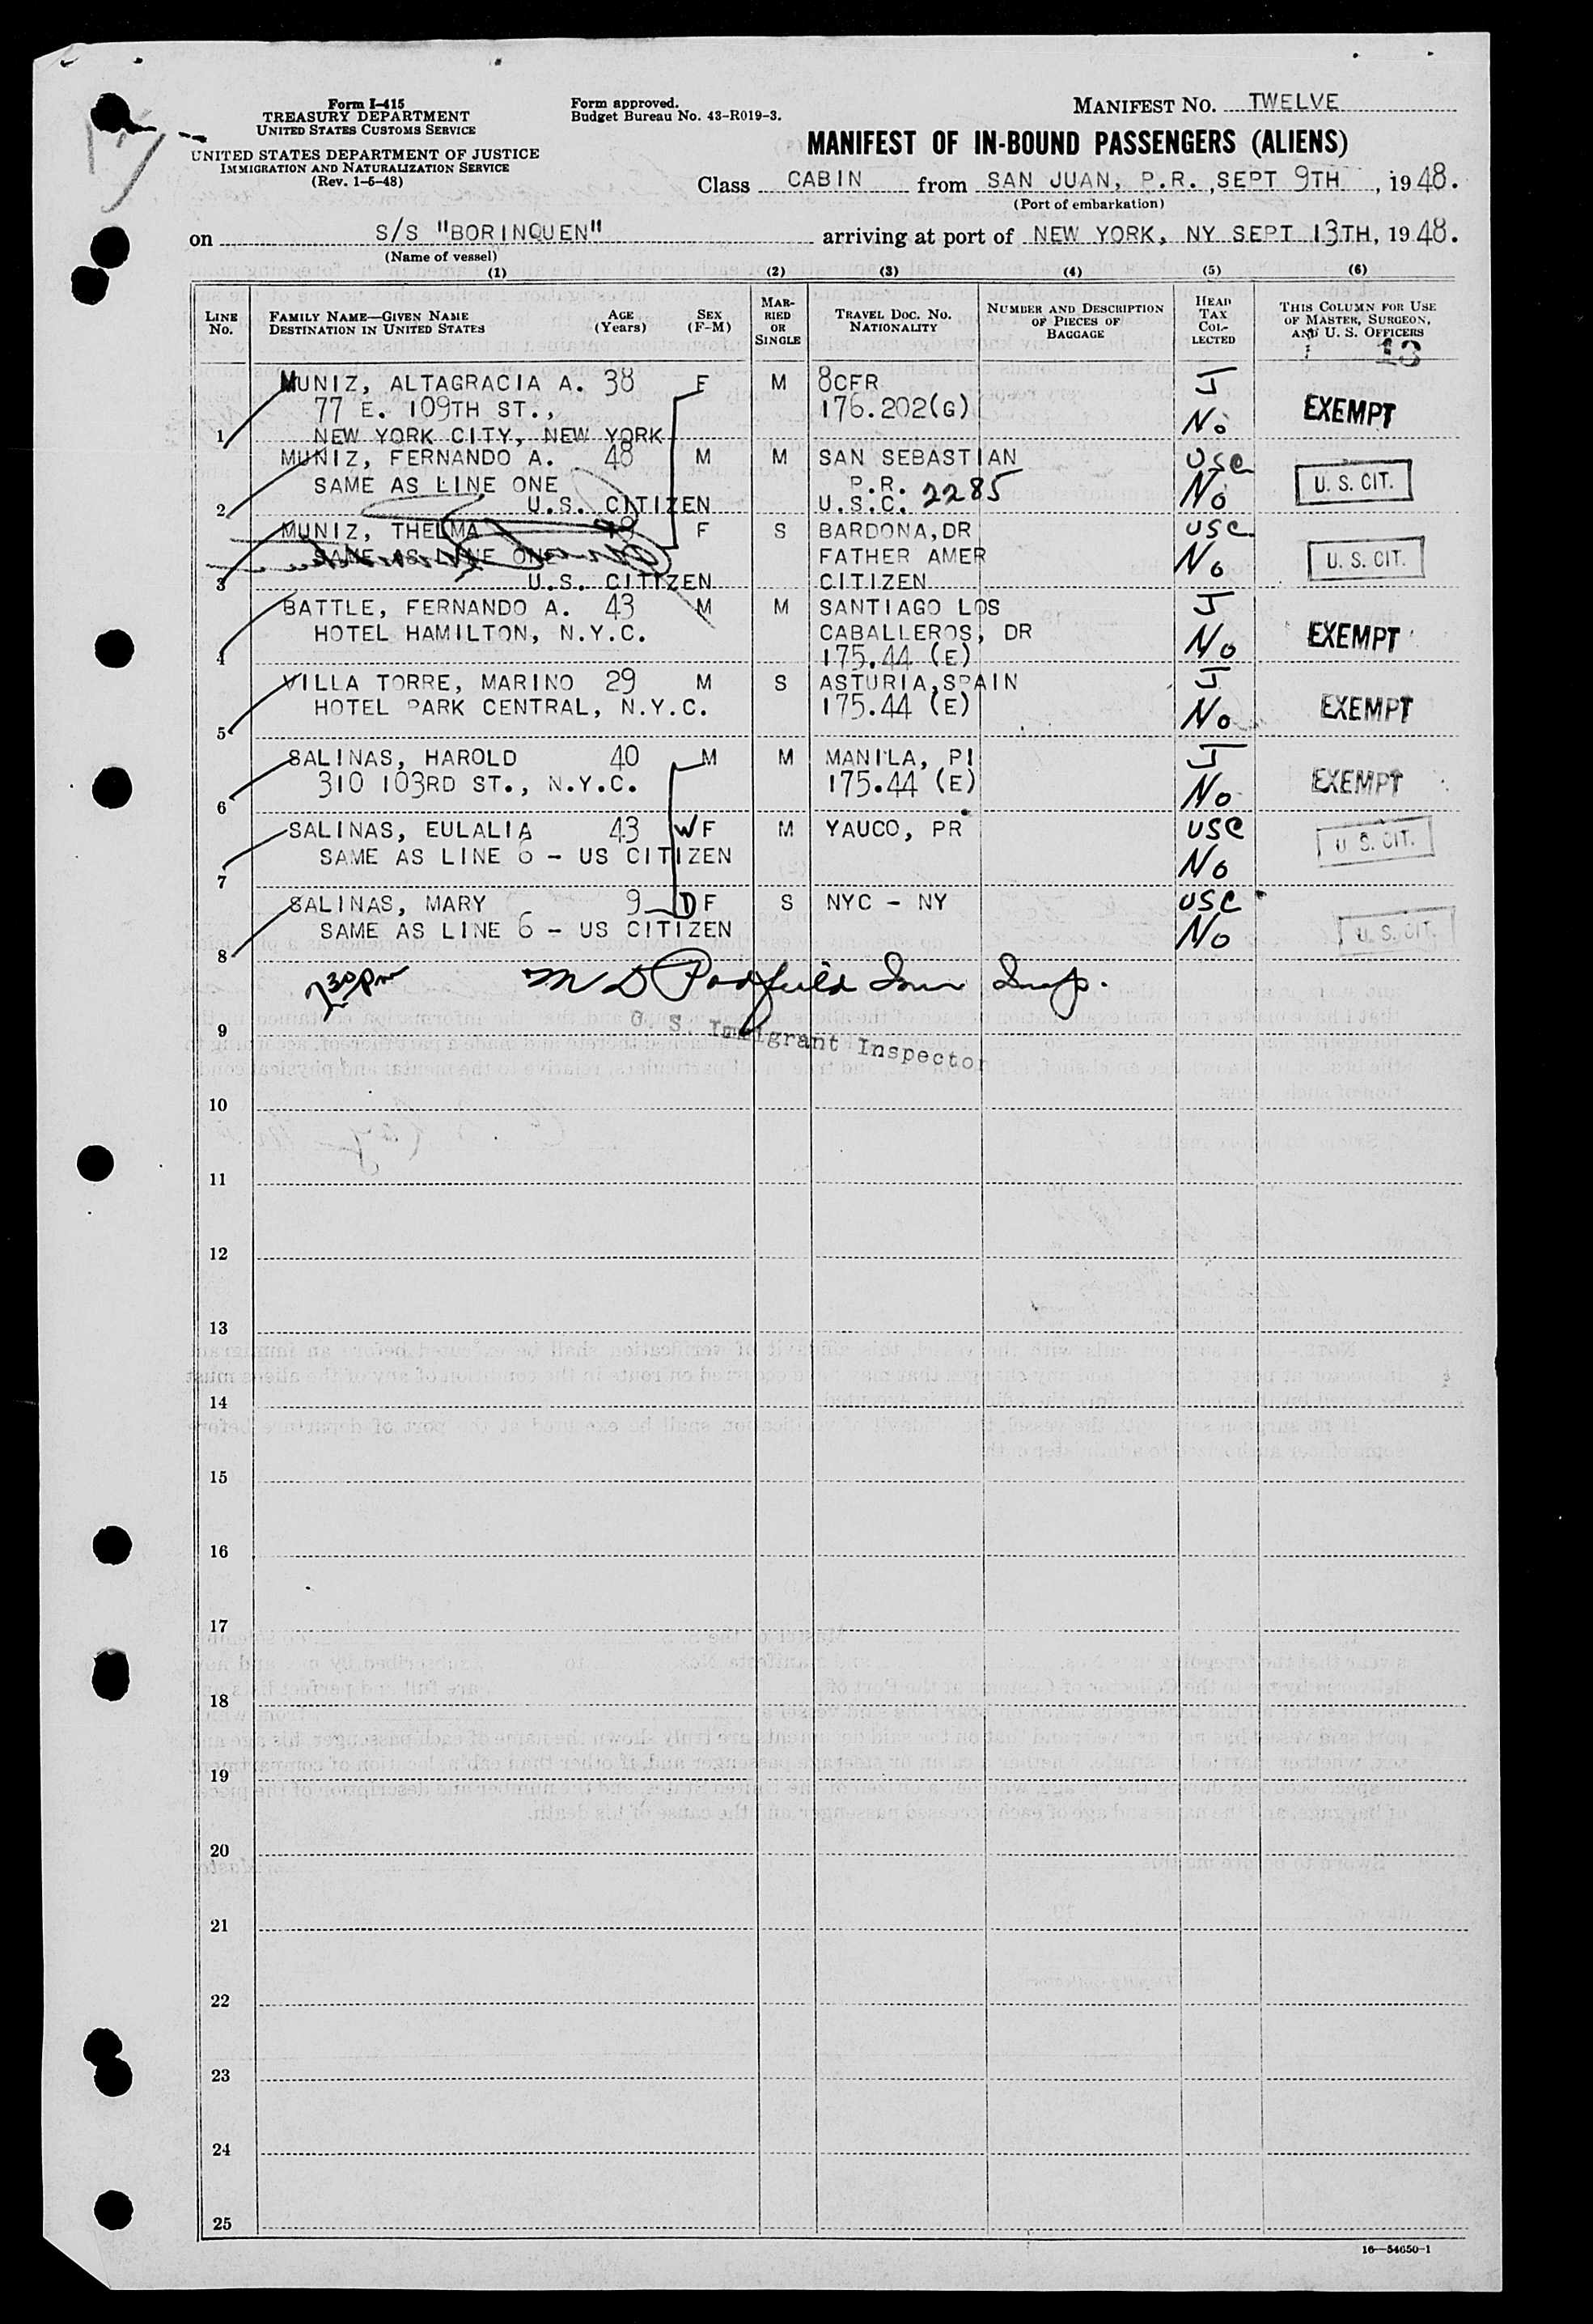 Form I-415
TREASURY DEPARTMENT
UNITED STATES CUSTOMS SERVICE
UNITED STATES DEPARTMENT OF JUSTICE
IMMIGRATION AND NATURALIZATION SERVICE
(Rev. 1-5-48)
Form approved.
Budget Bureau No. 43-R019-3.
MANIFEST NO. TWELVE
MANIFEST OF IN-BOUND PASSENGERS (ALIENS)
Class CABIN from SAN JUAN, P.R., SEPT 9TH, 1948.
(Port of embarkation)
on S/S "BORINQUEN" arriving at port of NEW YORK, NY SEPT 13TH, 1948.
(Name of vessel)
(1) (2) (3) (4) (5) (6)
LINE No.
FAMILY NAME—GIVEN NAME
DESTINATION IN UNITED STATES
AGE (Years)
SEX (F-M)
MARRIED OR SINGLE
TRAVEL DOC. NO.
NATIONALITY
NUMBER AND DESCRIPTION OF PIECES OF BAGGAGE
HEAD TAX COLLECTED
THIS COLUMN FOR USE OF MASTER, SURGEON, AND U. S. OFFICERS
13
MUNIZ, ALTAGRACIA A. 38 F M 8CFR J
77 E. 109TH ST., 176.202(G) No EXEMPT
1 NEW YORK CITY, NEW YORK
MUNIZ, FERNANDO A. 48 M M SAN SEBASTIAN USC
SAME AS LINE ONE P.R. No U. S. CIT.
2 U.S. CITIZEN U.S.C. 2285
MUNIZ, THELMA F S BARDONA, DR USC
SAME AS LINE ONE FATHER AMER No U. S. CIT.
3 U.S. CITIZEN CITIZEN
BATTLE, FERNANDO A. 43 M M SANTIAGO LOS J
HOTEL HAMILTON, N.Y.C. CABALLEROS, DR No EXEMPT
4 175.44 (E)
VILLA TORRE, MARINO 29 M S ASTURIA, SPAIN J
HOTEL PARK CENTRAL, N.Y.C. 175.44 (E) No EXEMPT
5
SALINAS, HAROLD 40 M M MANILA, PI J
310 103RD ST., N.Y.C. 175.44 (E) No EXEMPT
6
SALINAS, EULALIA 43 W F M YAUCO, PR USC
SAME AS LINE 6 - US CITIZEN No U. S. CIT.
7
SALINAS, MARY 9 D F S NYC - NY USC
SAME AS LINE 6 - US CITIZEN No U. S. CIT.
8
7 30 pm M D Padfield Imm Insp.
U. S. Immigrant Inspector
9
10
11
12
13
14
15
16
17
18
19
20
21
22
23
24
25
16—54650-1